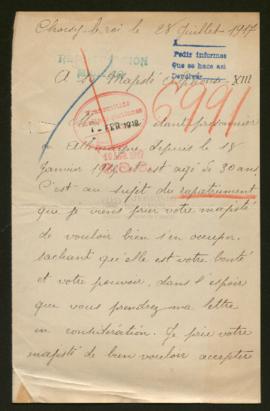 Choisy-le-roi le 28 Juillet 1917
Pedir informes
Que se hace así
Devolver
A Sa Majesté Alphonse XIII
6991
étant prisonnier
en Allemagne, depuis le 18
Janvier et est agé de 30 ans,
C'est au sujet du rapatriement
que je viens prier votre majesté
de vouloir bien s'en occuper,
sachant quelle est votre bonté
et votre pouvoir, dans l'espoir
que vous prendrez ma lettre
en considération. Je prie votre
majesté de bien vouloir accepter